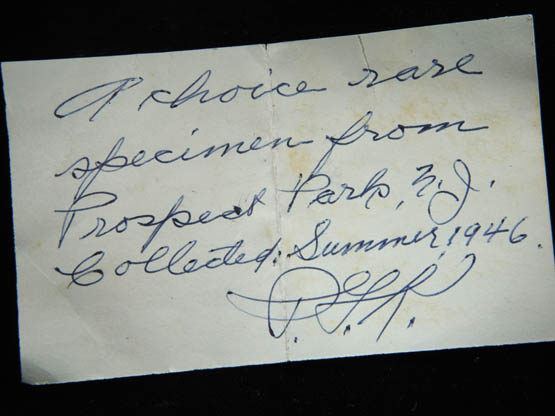 A choice rare
specimen from
Prospect Park, N.J.
Collected: Summer, 1946.